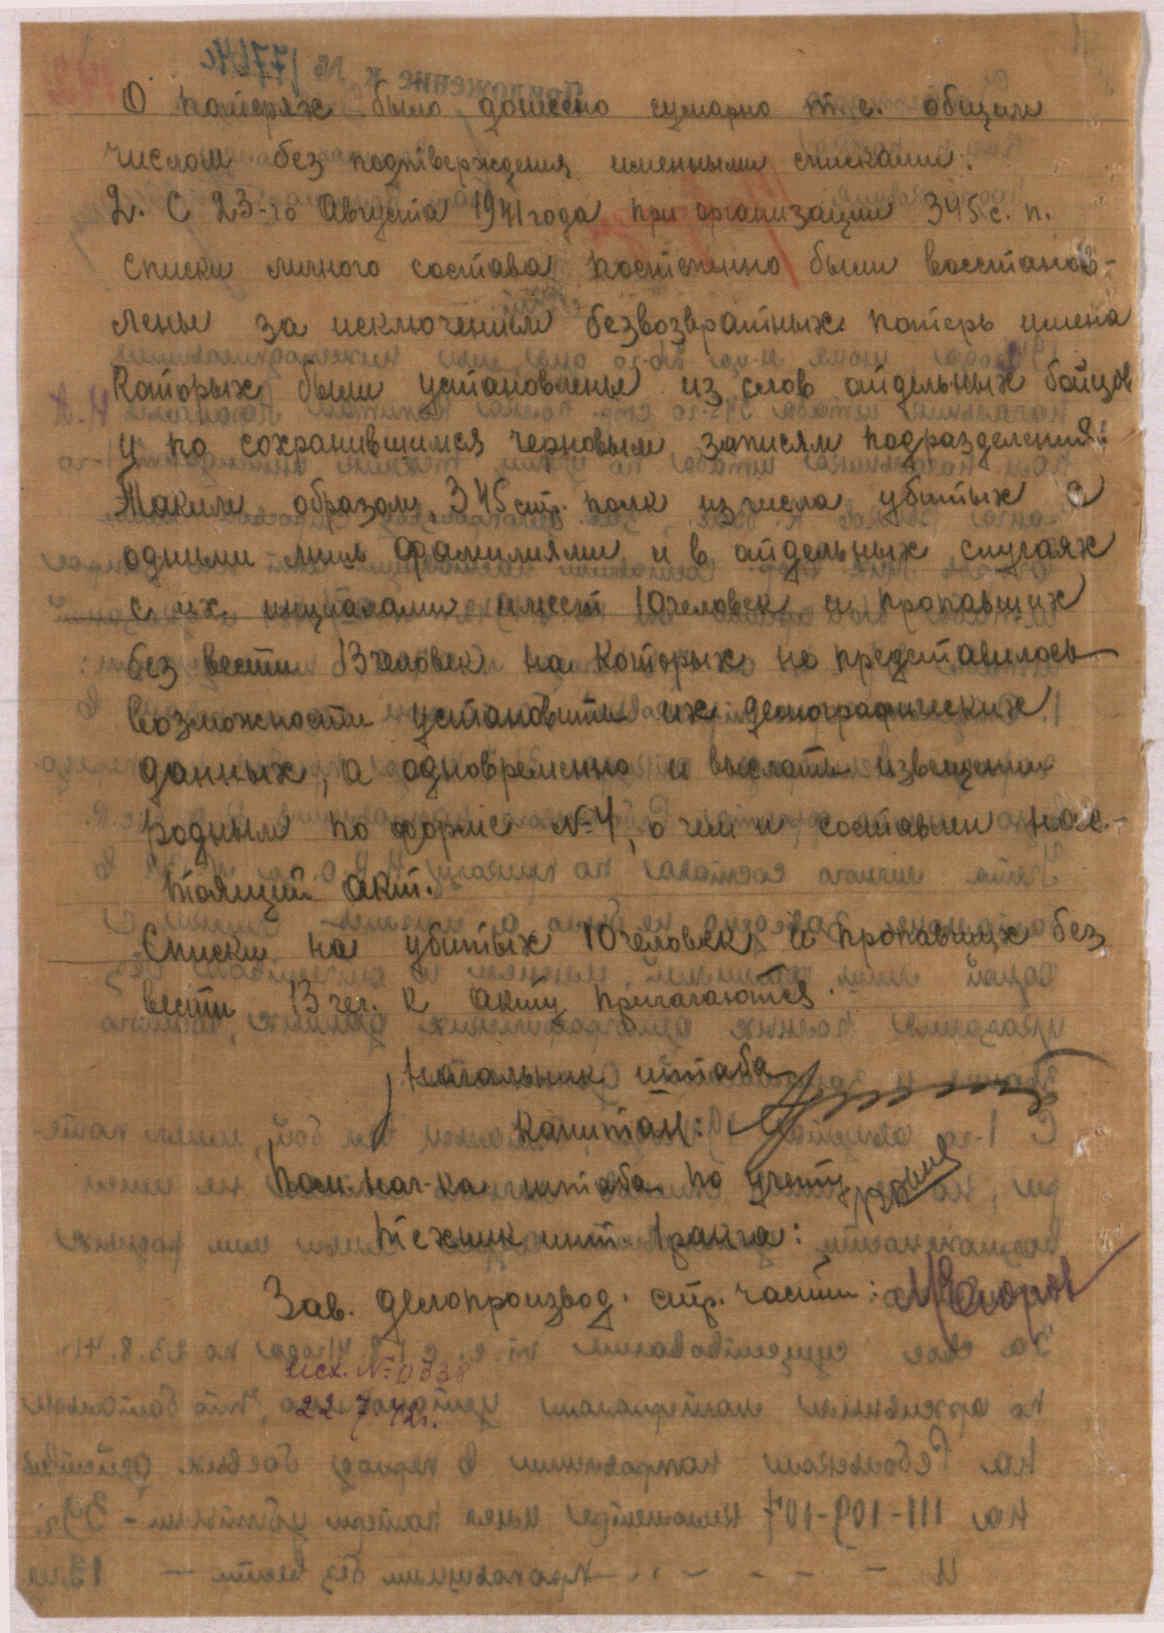 О потерях было донесено сумарно т.е. общим
числом без подтверждения именными списками.
2. С 23-го Августа 1941 года при организации 345 с. п.
списки личного состава постепенно были восстанов-
лены за исключением безвозвратных потерь имена
которых были установлены из слов отдельных бойцов
и по сохранившимся черновым записям подразделения.
Таким образом 345 стр. полк из числа убитых с
одними лишь фамилиями и в отдельных случаях
с их инициалами имеет 10 человек и пропавших
без вести 13 человек на которых не представилось
возможности установить их демографических
данных, а одновременно и выслать извещении
родным по форме №4, о чем и составлен нас-
тоящий акт.
Списки на убитых 10 человек и пропавших без
вести 13 чел. к акту прилагаются.
Начальник штаба
капитан:
Пом. нач-ка штаба по учету
техник инт. ранга:
Зав. делопроизвод. стр. части:
Исх. №0338
22 7 42г.